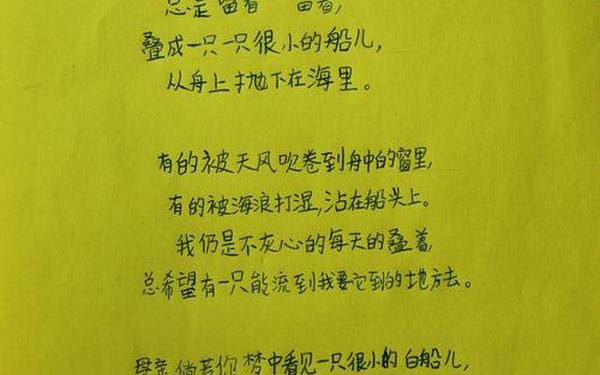 总是留着——留着,
叠成一只一只很小的船儿,
从舟上抛下在海里。
有的被天风吹卷到舟中的窗里,
有的被海浪打湿,沾在船头上。
我仍是不灰心的每天的叠着,
总希望有一只能流到我要它到的地方去。
母亲,倘若你梦中看见一只很小的白船儿,